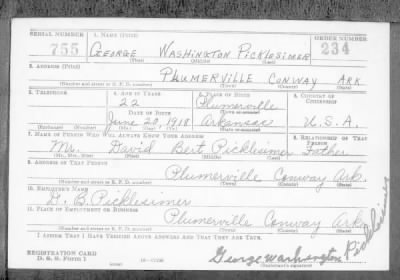 SERIAL NUMBER 1. NAME (Print) ORDER NUMBER
755 GEORGE WASHINGTON PICKLESIMER 234
(First) (Middle) (Last)
2. ADDRESS (Print)
PLUMERVILLE CONWAY ARK
(Number and street or R. F. D. number) (Town) (County) (State)
3. TELEPHONE 4. AGE IN YEARS 5. PLACE OF BIRTH 6. COUNTRY OF CITIZENSHIP
22 Plumerville
DATE OF BIRTH (Town or county)
June 20, 1918 Arkansas U.S.A.
(Exchange) (Number) (Mo.) (Day) (Yr.) (State or country)
7. NAME OF PERSON WHO WILL ALWAYS KNOW YOUR ADDRESS 8. RELATIONSHIP OF THAT PERSON
Mr. David Bert Picklesimer Father
(Mr., Mrs., Miss) (First) (Middle) (Last)
9. ADDRESS OF THAT PERSON
Plumerville Conway Ark.
(Number and street or R. F. D. number) (Town) (County) (State)
10. EMPLOYER'S NAME
D. B. Picklesimer
11. PLACE OF EMPLOYMENT OR BUSINESS
Plumerville Conway Ark
(Number and street or R. F. D. number) (Town) (County) (State)
I AFFIRM THAT I HAVE VERIFIED ABOVE ANSWERS AND THAT THEY ARE TRUE.
REGISTRATION CARD
D. S. S. FORM 1 George Washington Picklesimer
(Registrant's signature)